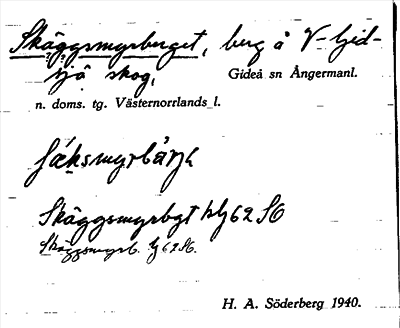 Skäggsmyrberget, berg å V-Gid-
sjö skog,
Gideå sn Ångermanl.
n. doms. tg. Västernorrlands l.
Skäggsmyrbgt bl 62 SO
Skäggsmyrb. bl 62 SO.
H. A. Söderberg 1940.